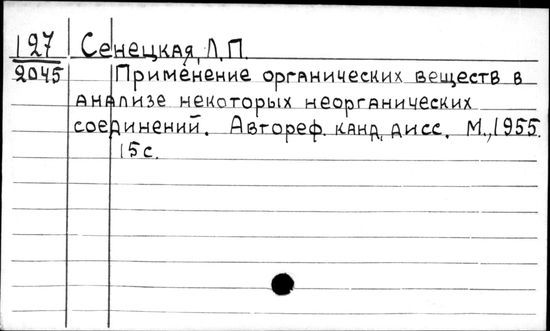 127 Сенецкая, Л.П.
2045 Применение органических веществ в
анализе некоторых неорганических
соединений. Автореф. канд. дисс. М., 1955.
15с.